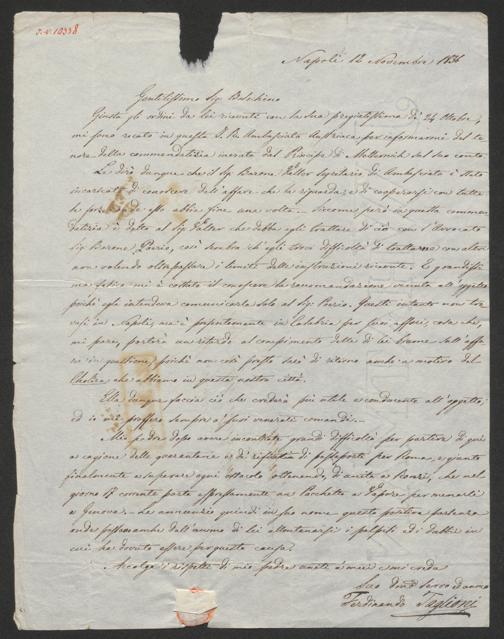 I.N. 10338
Napoli 12 Novembre 1836
Gentilissimo Sig. Belchino
Giusta gli ordini da lei ricevuti con la sua pregiatissima di 24 Ottobre,
mi sono recato in questa I. R. Ambasciata Austriaca per informarmi del te
nore della commendatizia inviata dal Principe di Metternich sul suo conto
Le dirò dunque che il Sig. Barone Segretario di Ambasciata è stato
incaricato di conoscere dell'affare che la riguarda e di cooperarsi con tutte
le forze onde esso abbia fine una volta. Siccome però in questa commen
datizia è detto al Sig. che debba egli trattare di ciò con l'Avvocato
Sig. Barone Poerio, così sembra ch'egli trovi difficoltà di trattarne con altri
non volendo oltrepassare i limiti delle instruzioni ricevute. E grandissi
ma fatica mi è costato il conoscere la raccomandazione venuta all'oggetto
poiché egli intendeva comunicarla solo al Sig. Poerio. Questi intanto non tro
vasi in Napoli, ma è presentemente in Calabria per suoi affari, cosa che,
mi pare, porterà un ritardo al compimento delle di lei brame sull'affa
re in questione, poiché non così presto sarà di ritorno anche a motivo del
Cholera che abbiamo in questa nostra città.
Ella dunque faccia ciò che crederà più utile e conducente all'oggetto,
ed io mi proffero sempre a' suoi venerati comandi.
Mio padre dopo avere incontrato grandi difficoltà per partire di qui
a cagione delle quarantene e di rifiuto di passaporti per Roma, è giunto
finalmente a superare ogni ostacolo ottenendo, d'unita a che nel
giorno 17 corrente parta espressamente un Pacchetto a Vapore per menarli
a Genova. Le annunzio quindi in suo nome questa partenza
onde possa anche dall'animo di lei allontanarsi i palpiti ed i dubbi in
cui ha dovuto essere per questa causa.
Accolga i rispetti di mio padre uniti a' miei e mi creda
Suo Dev.mo Servo ed amico
Ferdinando Taglioni